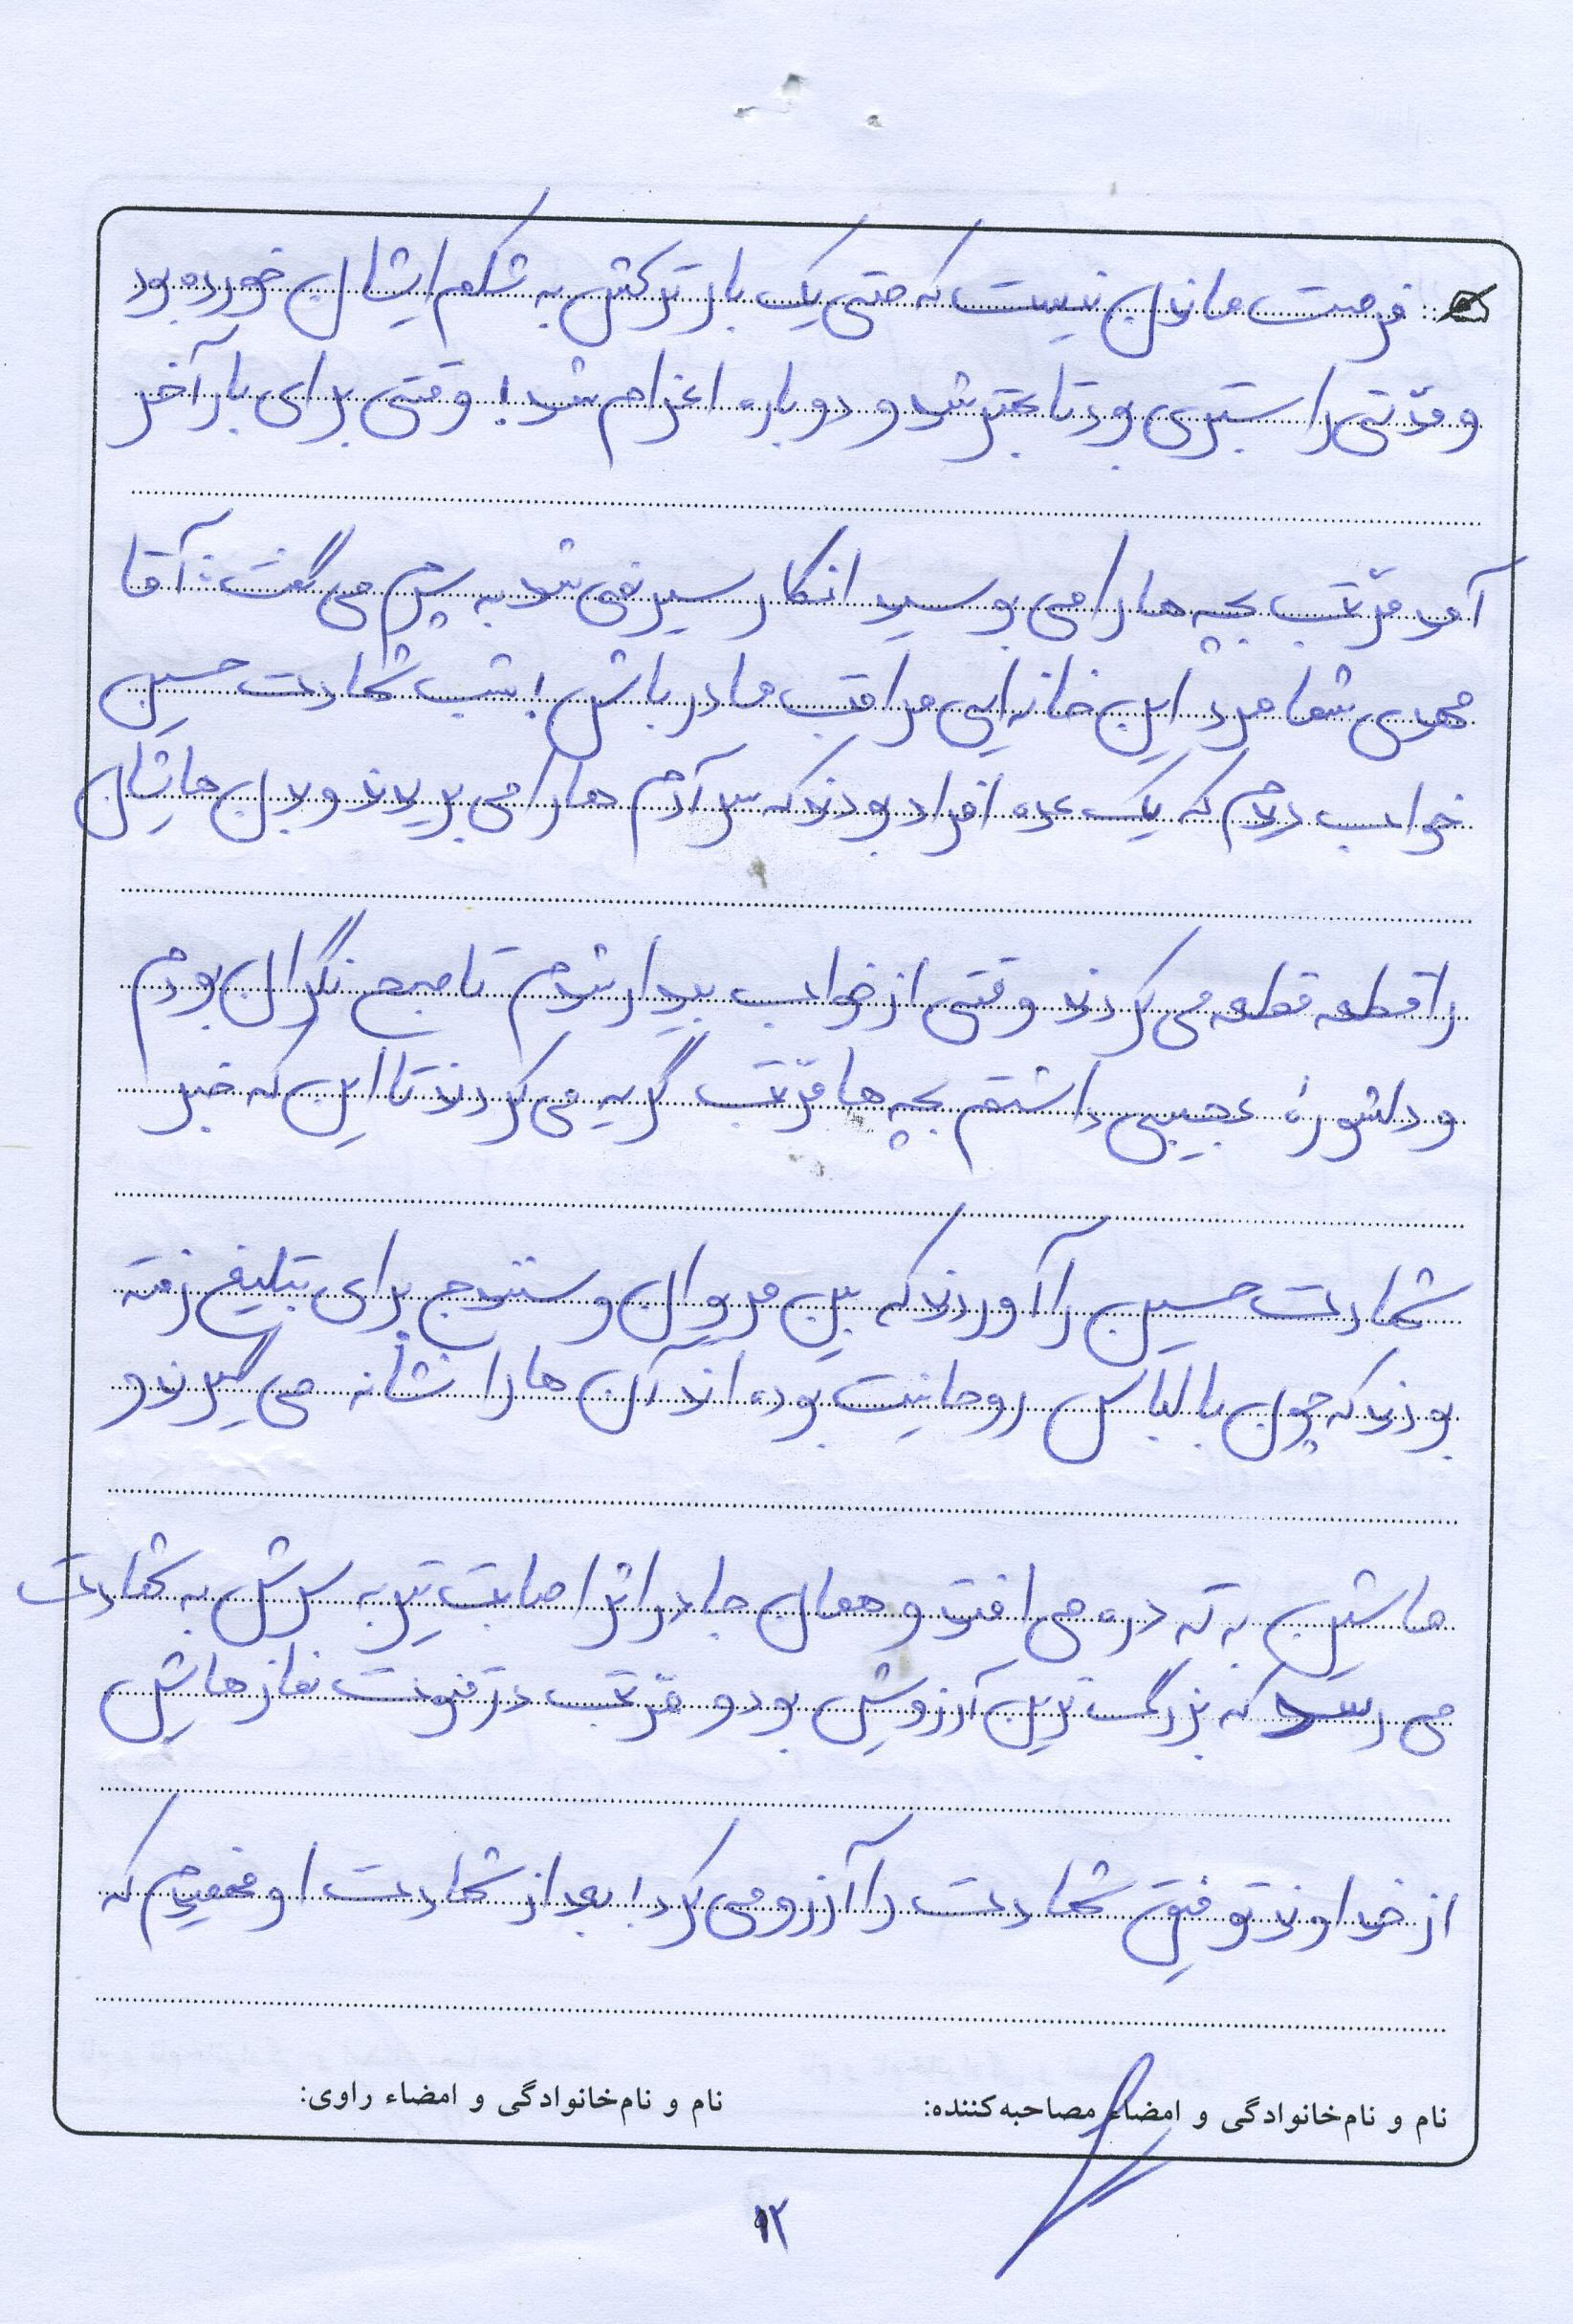 فرصت ماندن نیست که حتی یک بار ترکش به شکم ایشان خورده بود
و مدّتی را بستری بود تا بهتر شد و دوباره اعزام شد! وقتی برای بار آخر
آمد مرّتب بچه ها را می بوسید انکار سیر نمی شد به پسرم می گفت: آقا
مهدی شما مرد این خانه ایی مراقب مادر باش! شب شهادت حسین
خواب دیدم که یک عده افراد بودند که سر آدم ها را می بریدند و بدن هایشان
را قطعه قطعه می کردند وقتی از خواب بیدار شدم تا صبح نگران بودم
و دلشورهٔ عجیبی داشتم بچه ها مرّتب گریه می کردند تا این که خبر
شهادت حسین را آوردند که بین مریوان و سنندج برای تبلیغ رفته
بودند که چون با لباس روحانیت بوده اند آن ها را نشانه می گیرند و
ماشین به ته دره می افتد و همان جا در اثر اصابت تیر به سرش به شهادت
می رسد که بزرگ ترین آرزویش بود و مرّتب در قنوت نماز هایش
از خداوند توفیق شهادت را آرزو می کرد! بعد از شهادت او فهمیدم که
نام و نام‌خانوادگی و امضاء مصاحبه‌کننده: نام و نام‌خانوادگی و امضاء راوی:
۱۲